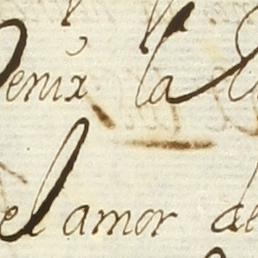 Fenix la
el amor de